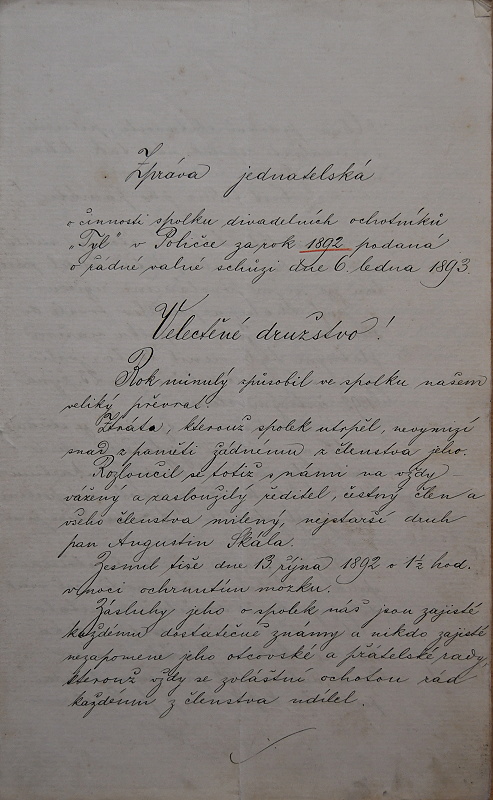 Zpráva jednatelská
o činnosti spolku divadelních ochotníků
„Tyl" v Poličce za rok 1892 podaná
o řádné valné schůzi dne 6. ledna 1893.
Velectěné družstvo!
Rok minulý způsobil ve spolku našem
veliký převrat.
Ztráta, kterouž spolek utrpěl, nevymizí
snad z paměti žádnému z členstva jeho.
Rozloučil se totiž s námi na vždy
vážený a zasloužilý ředitel, čestný člen a
všeho členstva milený, nejstarší druh
pan Augustin Skála.
Zesnul tiše dne 13. října 1892 o 1½ hod.
v noci ochrnutím mozku.
Zásluhy jeho o spolek náš jsou zajisté
každému dostatečně známy a nikdo zajisté
nezapomene jeho otcovské a přátelské rady,
kterouž vždy se zvláštní ochotou rád
každému z členstva udílel.